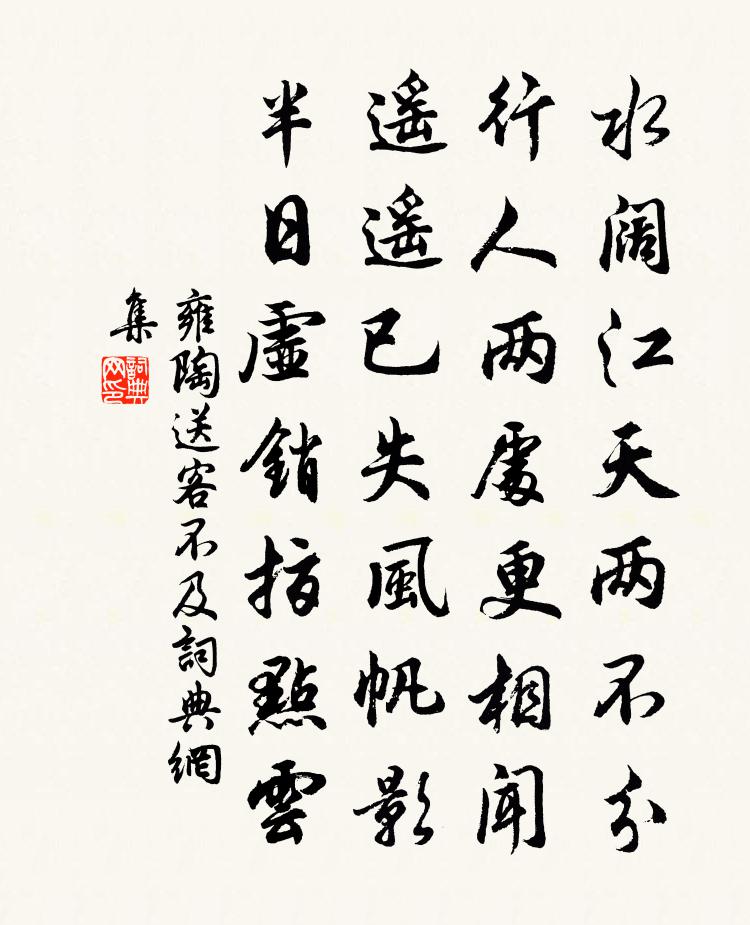 水阔江天两不分
行人两處更相聞
遥遥已失風帆影
半日虛銷指點雲
雍陶送客不及詞典網
集
詞典
网印